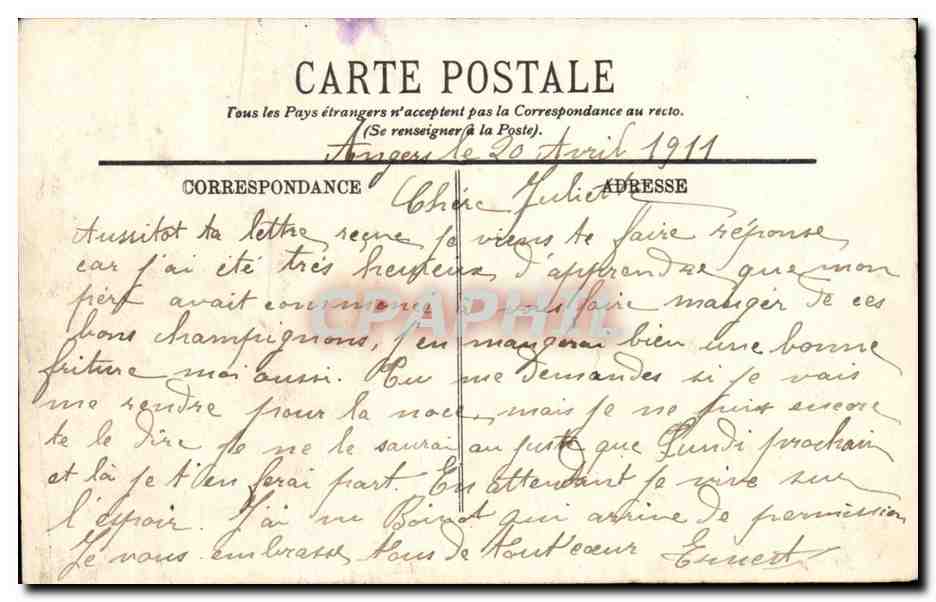 CARTE POSTALE
Tous les Pays étrangers n'acceptent pas la Correspondance au recto.
(Se renseigner à la Poste).
Angers le 20 Avril 1911
CORRESPONDANCE ADRESSE
Chère Juliette
Aussitot ta lettre reçue je viens te faire réponse
car j'ai été très heureux d'apprendre que mon
père avait commencé à vous faire manger de ces
bons champignons, j'en mangerai bien une bonne
friture moi aussi. Tu me demandes si je vais
me rendre pour la noce, mais je ne puis encore
te le dire je ne le saurai au juste que Lundi prochain
et là je t'en ferai part. En attendant je vive sur
l'espoir. J'ai vu qui arrive de permission
Je vous embrasse tous de tout cœur Ernest
CPAPHIL